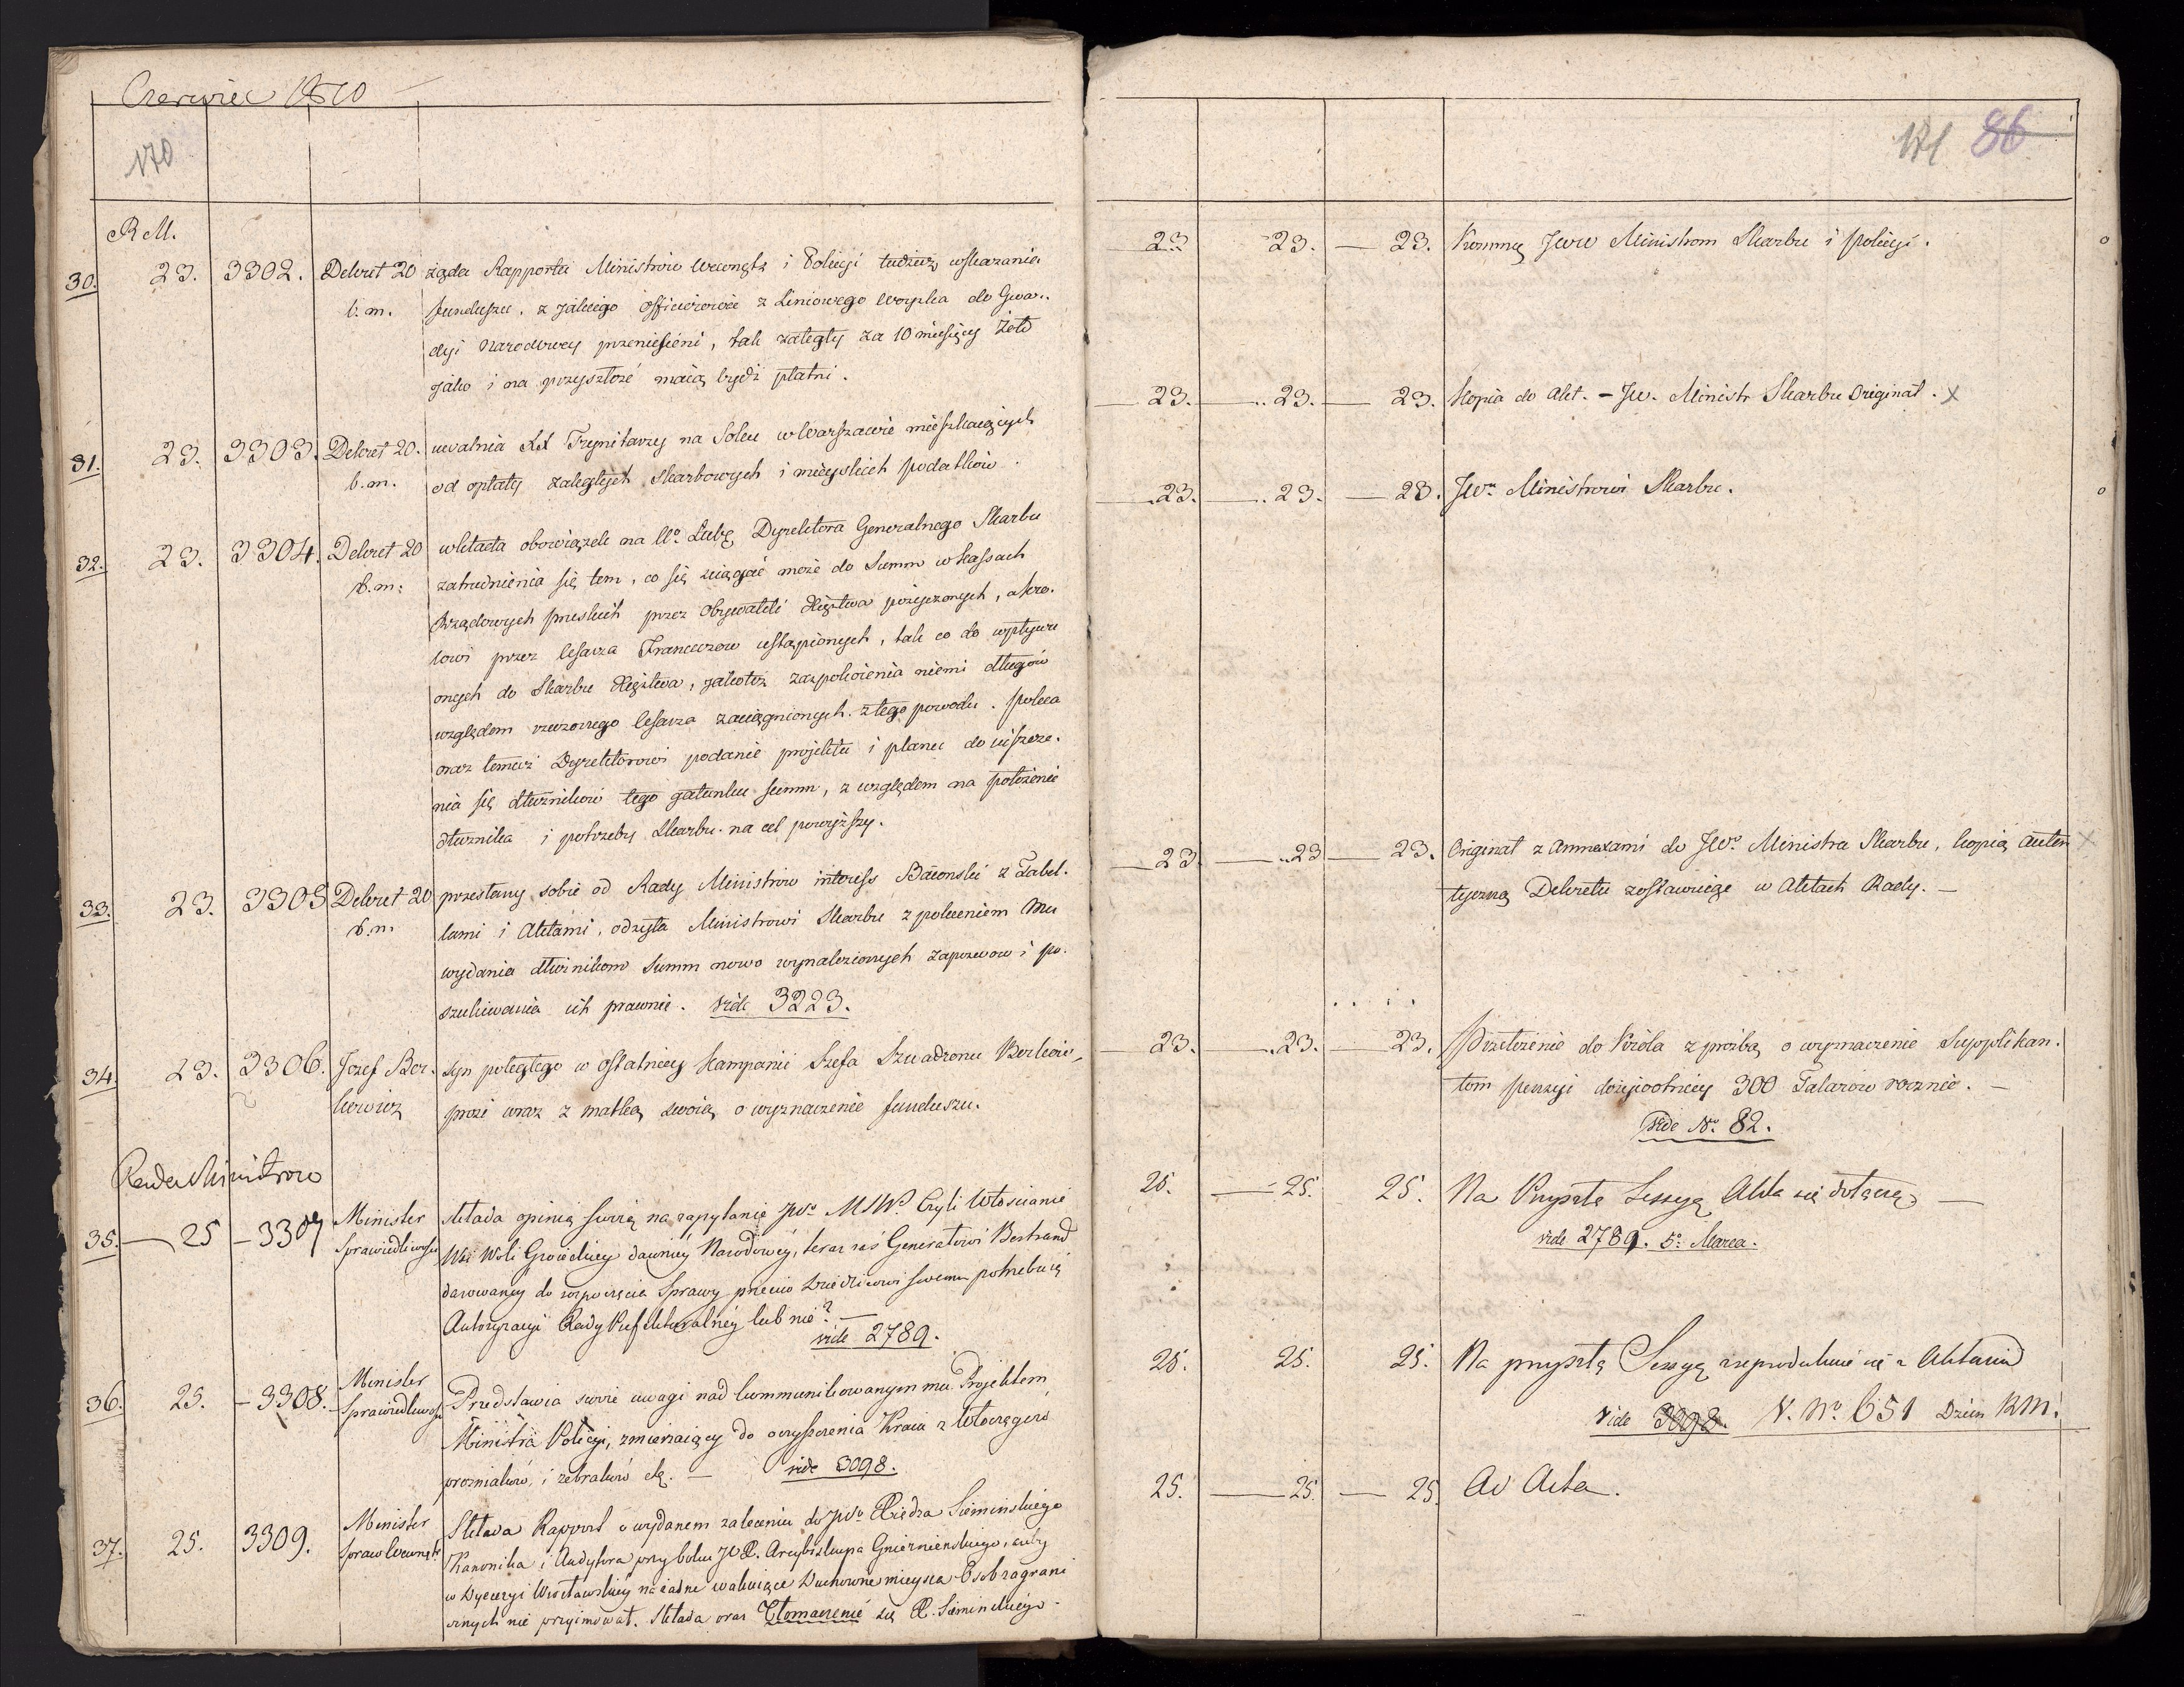 Czerwiec 1810
170
R M.
30. 23. 3302. Dekret 20 żąda Rapportu Ministrów Wewnętz i Policyi tudzież wskazania
b. m. funduszu, z jakiego officerowie z Liniowego woyska do Gwar-
dyi Narodowey przeniesieni, tak zaległy za 10 miesięcy żołd
jako i na przyszłość maią bydź płatni.
31. 23. 3303. Dekret 20. uwalnia XX Trynitarzy na Solcu w Warszawie mieszkaiących
b. m. od opłaty zaległych Skarbowych i mieyskich podatków.
32. 23. 3304. Dekret 20 wkłada obowiązek na Wo. Lubę Dyrektora Generalnego Skarbu
b. m: zatrudnienia się tem, co się sciągać może do Summ w Kassach
Rządowych pruskich przez Obywateli Xięztwa pożyczonych, a Kró-
lowi przez Cesarza Francuzow ustąpionych, tak co do wpływu
onych do Skarbu Xięztwa, jakotéz zaspokoienia niemi długów
względem rzeczonego Cesarza zaciągnionych z tego powodu. poleca
oraz temuż Dyrektorowi podanie projektu i planu do uiszcze-
nia się dłużników tego gatunku summ, z względem na położenie
dłużnika i potrzeby Skarbu na cel powyższy.
33. 23. 3305 Dekret 20 przesłany sobie od Rady Ministrów interess Baionski z Tabel-
b. m. lami i Aktami, odsyła Ministrowi Skarbu z poleceniem Mu
wydania dłużnikom Summ nowo wynalezionych zapozwow i po-
szukiwania ich prawnie. vide 3223.
34. 23. 3306. Jozef Ber- syn poległego w ostatniey Kampanii Szefa Szwadronu Berkowi-
kowicz prosi wraz z matką swoią o wyznaczenie funduszu.
Rada Ministrow
35. 25 3307 Minister składa opinią swoią na zapytanie JWo MSWo Czyli Włościanie
Sprawiedliwości Wsi Woli Grodeckiey dawniéy Narodowéy, teraz zaś Generałowi Bertrand
darowaney do rozpoczęcia Sprawy przeciw Dziedzicowi swemu potrzebuią
Autoryzacyi Rady Prefekturalnéy lub nie?
vide 2789.
36. 25. 3308. Minister Przedstawia swoie uwagi nad kommunikowanym mu Projektem
Sprawiedliwości Ministra Policyi, zmierzaiący do oczyszczenia Kraiu z Włoczęgów
prozniaków, i żebraków etc. vide 3098.
37. 25. 3309. Minister Składa Rapport o wydanem zaleceniu do JWo Xiędza Siemienskiego
Spraw Wewnętz Kanonika i Audytora przy boku JO X. Arcybiskupa Gnieznienskiego, ażeby
w Dyecezyi Wrocławskiéy na żadne wakuiące Duchowne mieysca Osob zagrani
cznych nie przyimował. Składa oraz Tłomaczenie się X. Siemienskiego.
171 86
23 23. 23. Kommą Jww Ministrom Skarbu i policyi.
23. 23. 23. Kopia do Akt. – Jw. Ministr Skarbu Originał. x
23. 23. 23. JWo Ministrowi Skarbu.
23 23 23. Originał z Annexami do JWo Ministra Skarbu, kopią auten
tyczną Dekretu zostawuiąc w Aktach Rady.
23. 23. 23. Przełożenie do Króla z prozbą o wyznaczenie Supplikan-
tom pensyi dożywotniey 300 Talarów rocznie.
Vide No. 82.
25. 25. 25. Na Przyszłą Sessyą Akta się dołączą
vide 2789. 5o Marca.
25. 25. 25. Na przyszłą Sessyą zreprodukuie się z Aktami
Vide 3098. V. No 651 Dzien RM.
25. 25. 25. Ad Acta.